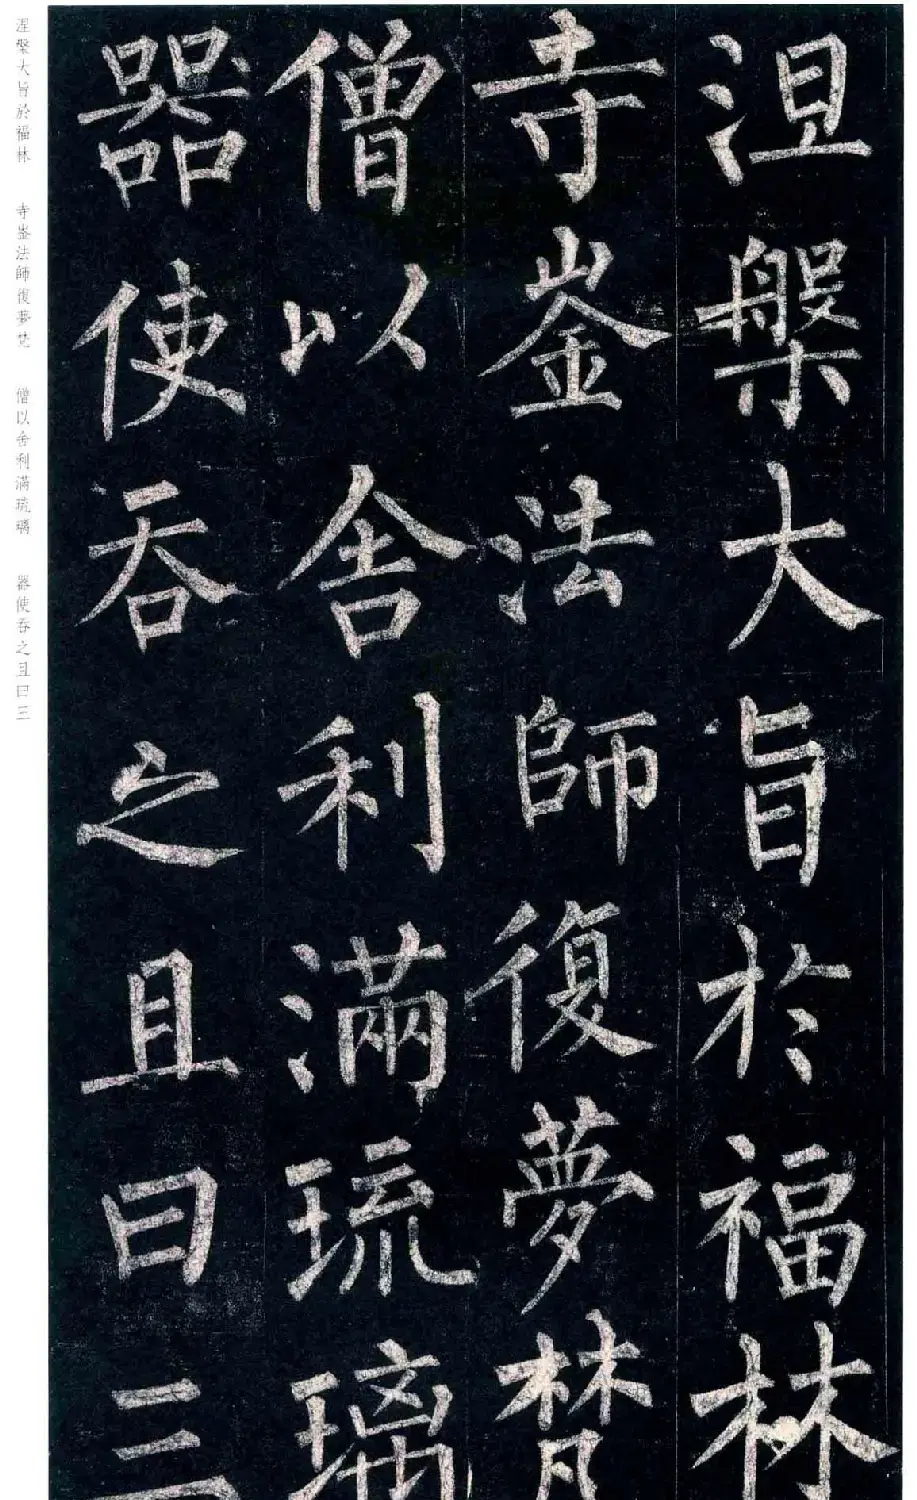 涅槃大旨於福林
寺崟法師復夢梵
僧以舍利滿琉璃
器使吞之且曰三
涅槃大旨於福林 寺崟法師復夢梵 僧以舍利滿琉璃 器使吞之且曰三